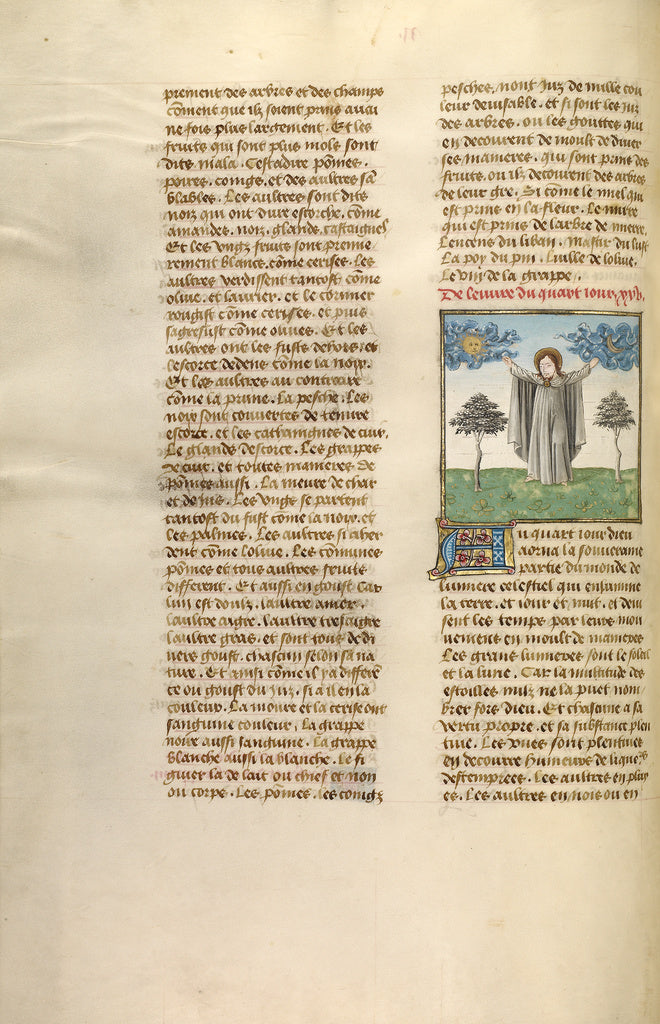 prement des arbres et des champs
cōment que ilz soient prins aucu
ne fois plus largement. Et les
fruits qui sont plus mols sont
dits mala. Cestadire pōmes.
poires, coings, et des aultres sā
blables. Les aultres sont dits
noix qui ont dure escorche. cōme
amandes. noix. glands. castaignes
Et les vngz fruits sont premie
rement blancs. cōme cerises. Les
aultres verdissent tantost cōme
oliue. et laurier. et le cormier
rougist cōme cerises. et puis
cōme oliues. Et les
aultres ont les fusts dehors. et
lescorce dedens cōme la noix.
Et les aultres au contraire
cōme la prune. La pesche. Les
noix sont couuertes de tenure
escorce. et les chathaignes de cuir.
Le glande descorce. Les grappes
de cuir. et toutes manieres de
pōmes aussi. La meure de char
et de ius. Les vngs se partent
tantost du fust cōme la noix. et
les palmes. Les aultres si aher
dent cōme loliue. Les cōmunes
pōmes et tous aultres fruits
different. Et aussi en goust Car
lun est doulz. laultre amer.
laultre aigre. laultre tresaigre
laultre gras. et sont tous de di
uers goust. chascun selon sa na
ture. Et ainsi cōme il y a differē
ce ou goust du iuz. si a il en la
couleur. La moure et la cerise ont
sanguine couleur. La grappe
noire aussi sanguine. La grappe
blanche aussi la blanche. Le fi
guier la de lait ou chief et non
ou corps. Les pōmes. les coingz
pesches. nont iuz de nulle cou
leur deuisable. et si sont les iuz
des arbres. ou les gouttes qui
en decourent de moult de diuer
ses manieres. qui sont prins des
fruits. ou ilz decourent des arbres
de leur gre. Si cōme le miel qui
est prins en la fleur. Le mirre
qui est prins de larbre de mirre.
Lencens du liban. Mastic du
La poy du pin. Luille de loliue.
Le vin de la grappe.
De leuure du quart iour. xxvb.
Au quart iour dieu
aorna la souueraine
partie du monde de
lumiere celestiel qui enlumine
la terre. et iour et nuit. et deui
sent les temps par leurs mou
uemens en moult de manieres
Les grans lumieres sont le soleil
et la lune. Car la multitude des
estoilles nulz ne la puet nom
brer fors dieu. Et chascune a sa
vertu propre. et sa substance plen
tiue. Les vnes sont plentiues
en decourre humeurs de liqueurs
destemprees. Les aultres en pluy
es. Les aultres en nois ou en